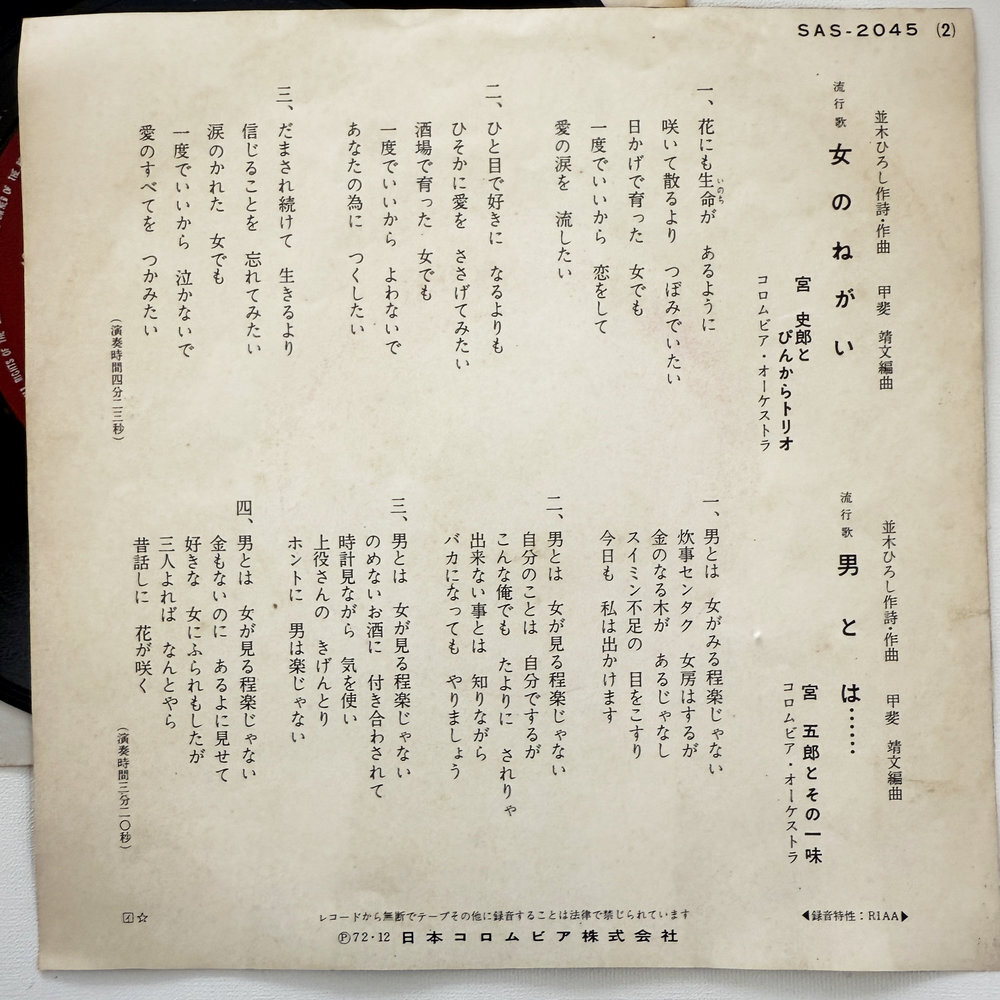 SAS-2045 (2)
並木ひろし作詩・作曲 甲斐 靖文編曲
流行歌 女のねがい
宮 史郎と
ぴんからトリオ
コロムビア・オーケストラ
一、花にも生命が あるように
いのち
咲いて散るより つぼみでいたい
日かげで育った 女でも
一度でいいから 恋をして
愛の涙を 流したい
二、ひと目で好きに なるよりも
ひそかに愛を ささげてみたい
酒場で育った 女でも
一度でいいから よわないで
あなたの為に つくしたい
三、だまされ続けて 生きるより
信じることを 忘れてみたい
涙のかれた 女でも
一度でいいから 泣かないで
愛のすべてを つかみたい
(演奏時間四分二三秒)
並木ひろし作詩・作曲 甲斐 靖文編曲
流行歌 男とは……
宮 五郎とその一味
コロムビア・オーケストラ
一、男とは 女がみる程楽じゃない
炊事センタク 女房はするが
金のなる木が あるじゃなし
スイミン不足の 目をこすり
今日も 私は出かけます
二、男とは 女が見る程楽じゃない
自分のことは 自分でするが
こんな俺でも たよりに されりゃ
出来ない事とは 知りながら
バカになっても やりましょう
三、男とは 女が見る程楽じゃない
のめないお酒に 付き合わされて
時計見ながら 気を使い
上役さんの きげんとり
ホントに 男は楽じゃない
四、男とは 女が見る程楽じゃない
金もないのに あるよに見せて
好きな 女にふられもしたが
三人よれば なんとやら
昔話しに 花が咲く
(演奏時間三分二〇秒)
イ☆
レコードから無断でテープその他に録音することは法律で禁じられています
Ⓟ72・12 日本コロムビア株式会社
◀録音特性:RIAA▶
RIGHTS OF THE